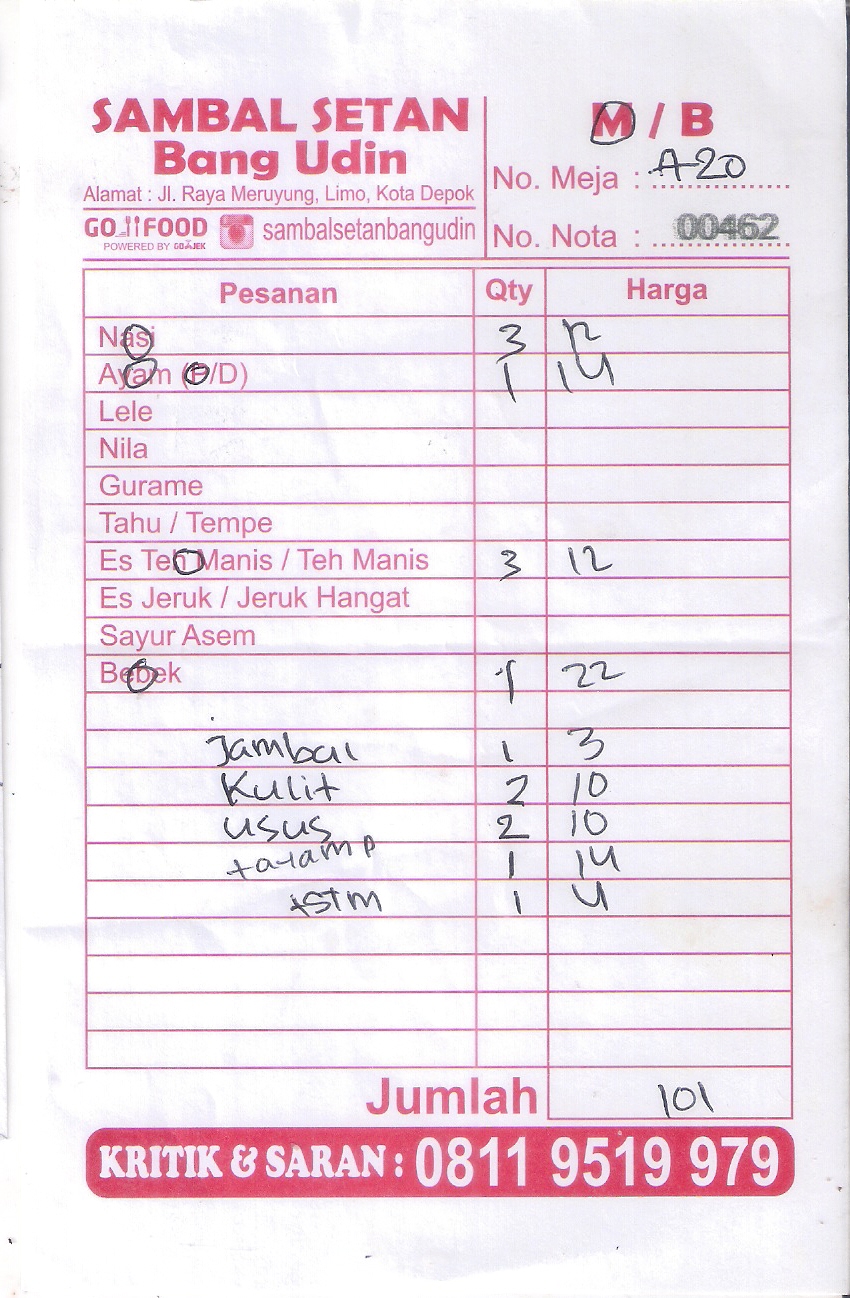 SAMBAL SETAN
Bang Udin
Alamat : Jl. Raya Meruyung, Limo, Kota Depok
GO FOOD
POWERED BY GOJEK
sambalsetanbangudin
M / B
No. Meja : A20
No. Nota : 00462
Pesanan Qty Harga
Nasi 3 12
Ayam (P/D) 1 14
Lele
Nila
Gurame
Tahu / Tempe
Es Teh Manis / Teh Manis 3 12
Es Jeruk / Jeruk Hangat
Sayur Asem
Bebek 1 22
Jambal 1 3
Kulit 2 10
usus 2 10
+ ayam p 1 14
+ STM 1 4
Jumlah 101
KRITIK & SARAN : 0811 9519 979